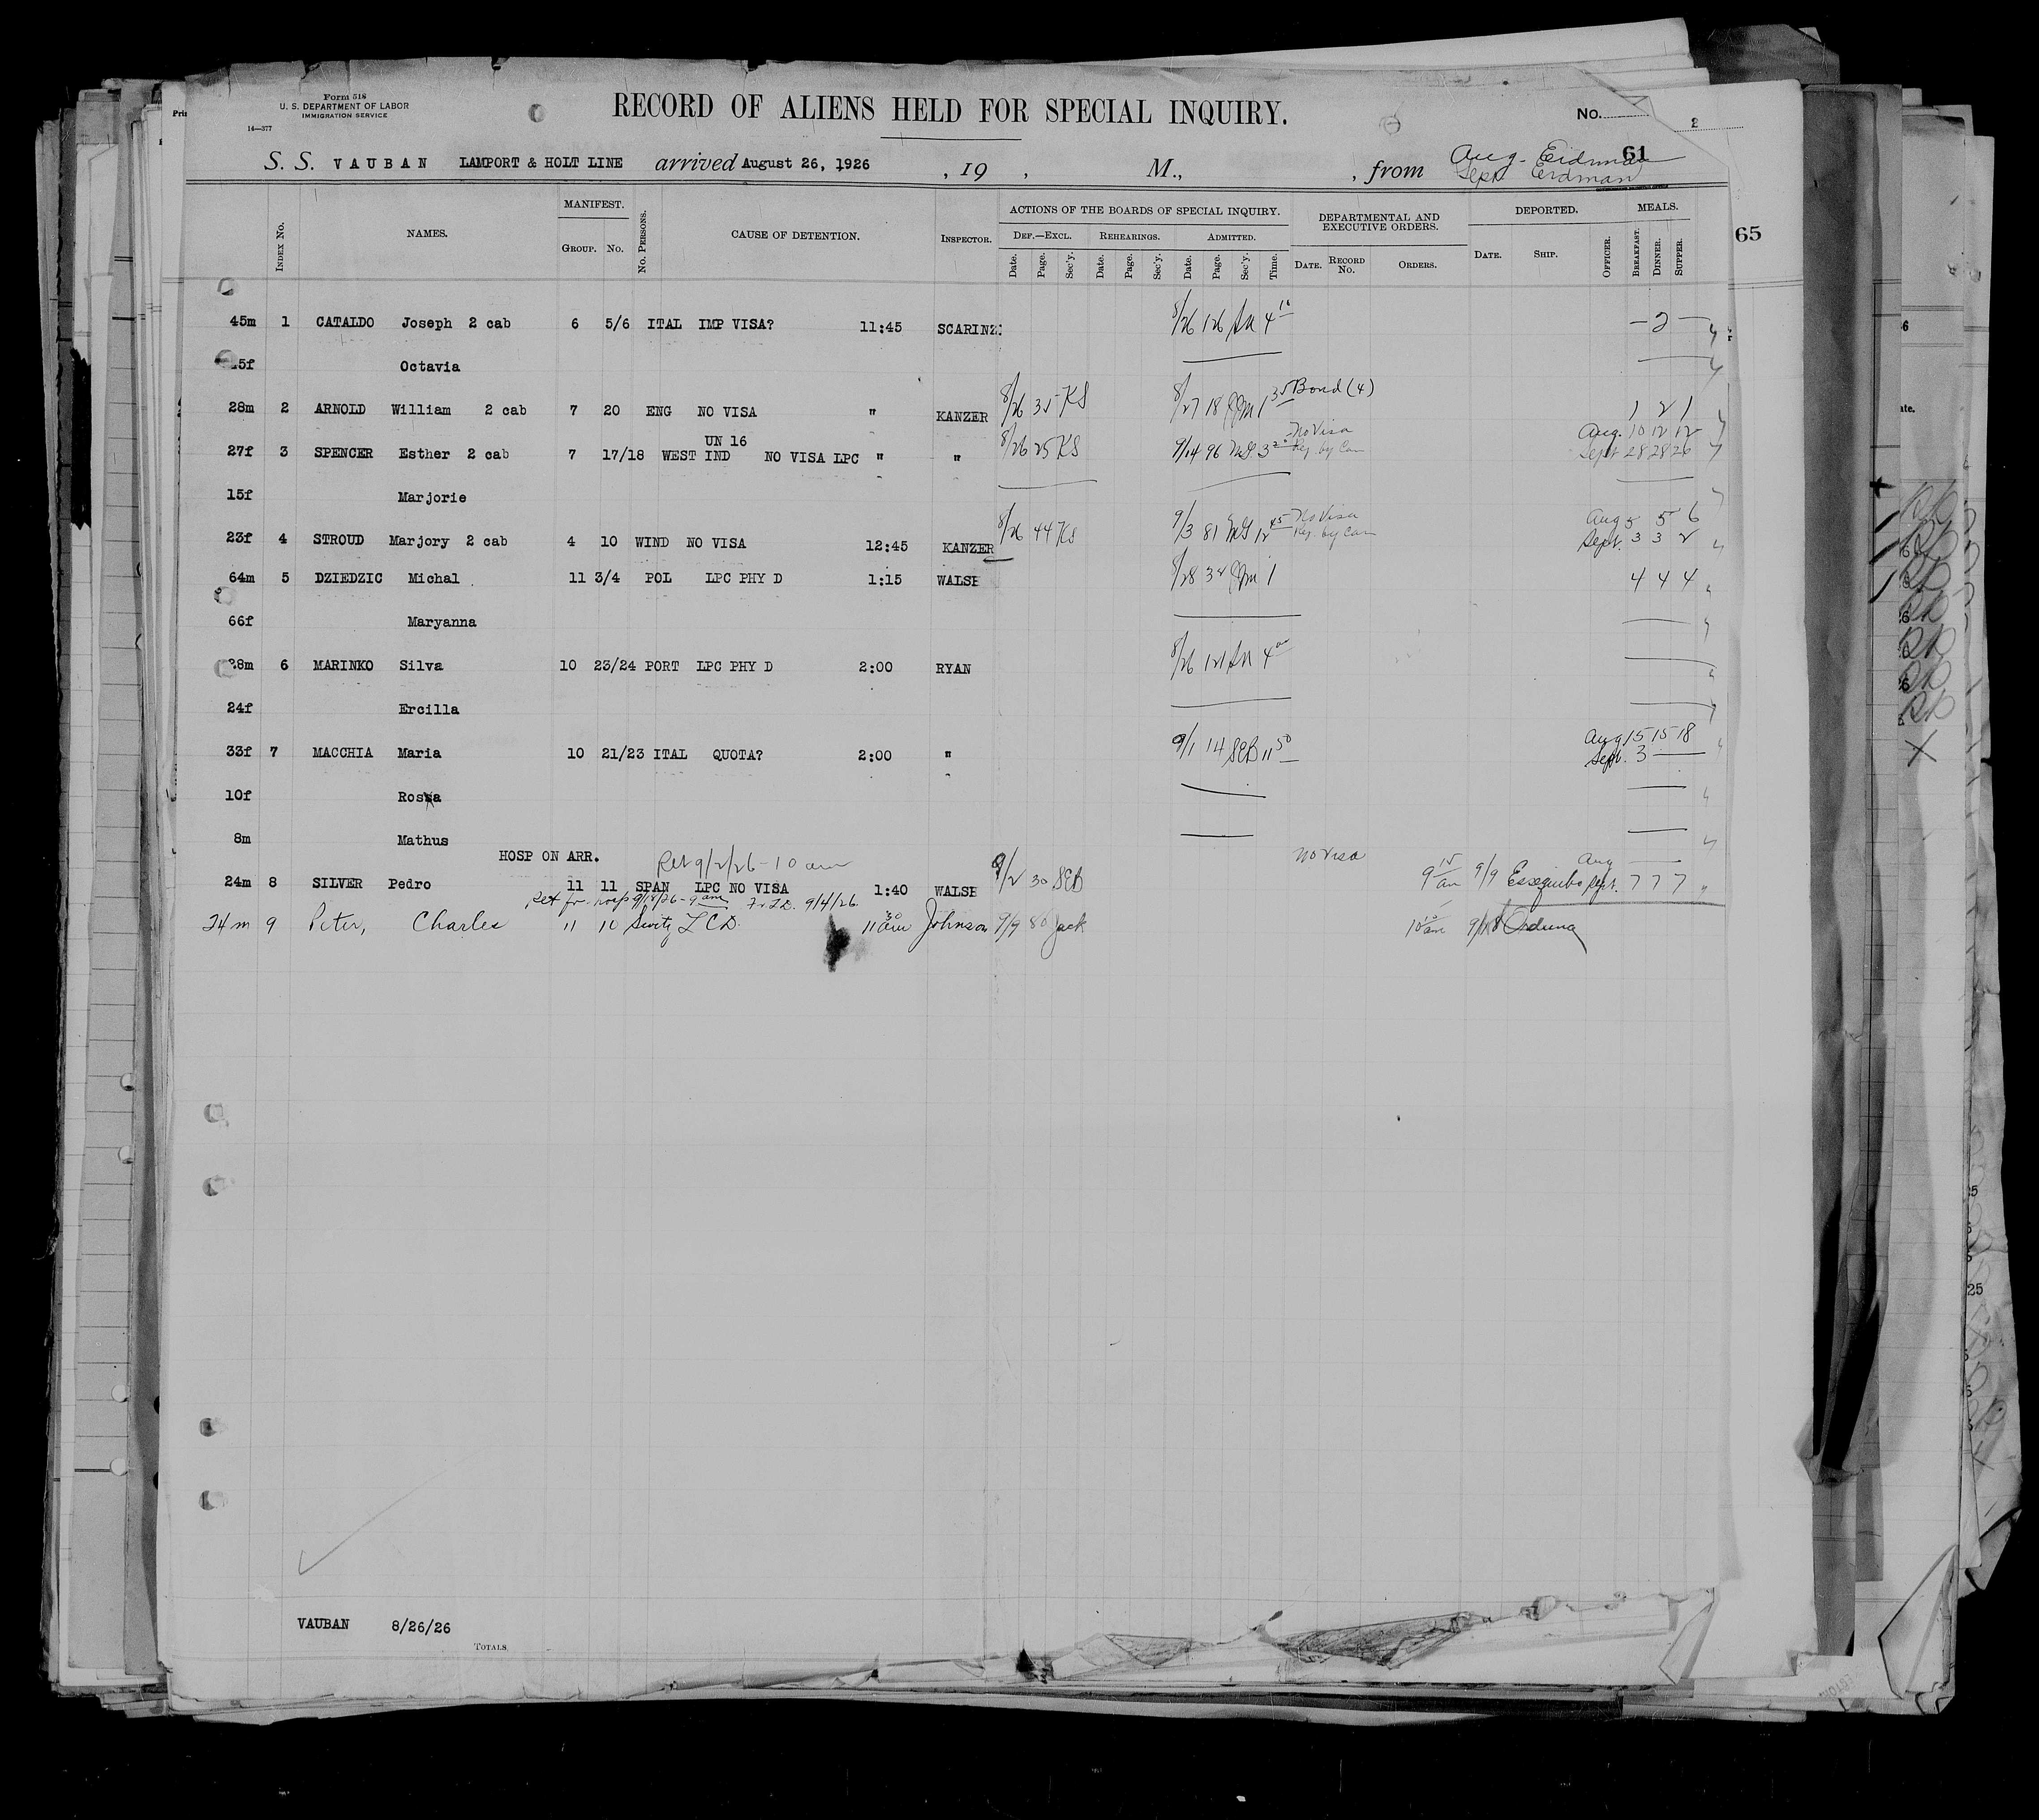 Form 518
U. S. DEPARTMENT OF LABOR
IMMIGRATION SERVICE
14—377
RECORD OF ALIENS HELD FOR SPECIAL INQUIRY.
No.
2
61
S. S. VAUBAN LAMPORT & HOLT LINE arrived August 26, 1926 , 19 , M., , from Aug. Eidman
Sept. Erdman
INDEX No. NAMES. MANIFEST. GROUP. No. No. PERSONS. CAUSE OF DETENTION. INSPECTOR. ACTIONS OF THE BOARDS OF SPECIAL INQUIRY. DEPARTMENTAL AND EXECUTIVE ORDERS. DEPORTED. MEALS.
DEF.—EXCL. REHEARINGS. ADMITTED.
Date. Page. Sec'y. Date. Page. Sec'y. Date. Page. Sec'y. Time. DATE. RECORD No. ORDERS. DATE. SHIP. OFFICER. BREAKFAST. DINNER. SUPPER.
65
45m 1 CATALDO Joseph 2 cab 6 5/6 ITAL IMP VISA? 11:45 SCARINZ 8/26 126 4 — 2 —
5f Octavia
28m 2 ARNOLD William 2 cab 7 20 ENG NO VISA " KANZER 8/26 35 KS 8/27 18 JM 1 35 Bond (4) 1 2 1
UN 16
27f 3 SPENCER Esther 2 cab 7 17/18 WEST IND NO VISA LPC " " 8/26 25 KS 9/14 96 3 No Visa Aug. 10 12 12
Sept 28 28 26
15f Marjorie
23f 4 STROUD Marjory 2 cab 4 10 WIND NO VISA 12:45 KANZER 8/26 44 KS 9/3 81 12 45 No Visa Aug 5 5 6
Sept. 3 3 2
64m 5 DZIEDZIC Michal 11 3/4 POL LPC PHY D 1:15 WALSH 8/28 32 JM 1 4 4 4
66f Maryanna
28m 6 MARINKO Silva 10 23/24 PORT LPC PHY D 2:00 RYAN 8/26 121 4
24f Ercilla
33f 7 MACCHIA Maria 10 21/23 ITAL QUOTA? 2:00 " 9/1 14 SEB 11 50 Aug 15 15 18
Sept. 3
10f Rossa
8m Mathus
HOSP ON ARR. Ret 9/2/26 - 10 am No Visa Aug
24m 8 SILVER Pedro 11 11 SPAN LPC NO VISA 1:40 WALSH 9/2 30 SEB 9 15 am 9/9 Essequibo Sept. 7 7 7
Ret fr. hosp 9/18/26 - 9 am 9/4/26.
24 m 9 Peter, Charles 11 10 Switz LCD. 11 30 am Johnson 9/9 80 Jack 10 10 am 9/18 Orduna
VAUBAN 8/26/26
TOTALS